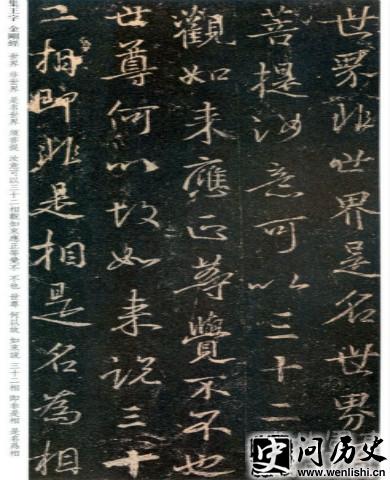 世界非世界是名世界
菩提汝意可以三十二
觀如来應正等覺不不也
世尊何以故如来說三十
二相即非是相是名為相
集王字 金剛經 世界 非世界 是名世界 須菩提 汝意可以三十二相觀如來應正等覺不 不也 世尊 何以故 如來說 三十二相 即非是相 是名爲相
史问历史
www.wenlishi.cn